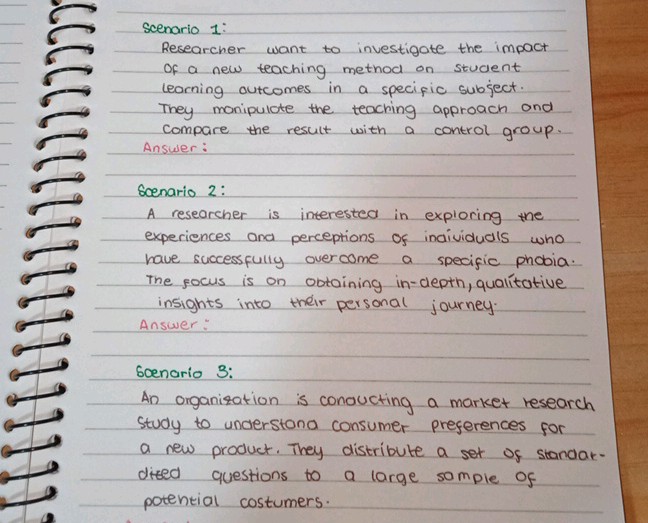 Scenario 1:
Researcher want to investigate the impact
Of a new teaching method on student
learning outcomes in a specific subject.
They manipulate the teaching approach and
compare the result with a control group.
Answer:
Scenario 2:
A researcher is interested in exploring the
experiences and perceptions of individuals who
have successfully overcome a specific phobia.
The focus is on obtaining in-depth, qualitative
insights into their personal journey.
Answer:
Scenario 3:
An organisation is conducting a market research
study to understand consumer preferences for
a new product. They distribute a set of standar-
dized questions to a large sample of
potential costumers.